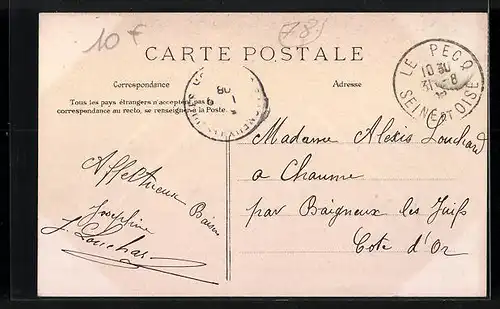 10 €
(78)
CARTE POSTALE
Correspondance
Adresse
Tous les pays étrangers n'acceptent pas la
correspondance au recto, se renseigner à la Poste.
LE PECQ
10 30
31 - 8
SEINE ET OISE
Madame Alexis Louchard
a Chaume
par Baigneux les Juifs
Cote d'Or
Affectueux Baisers
Joséphine
J. Louchard